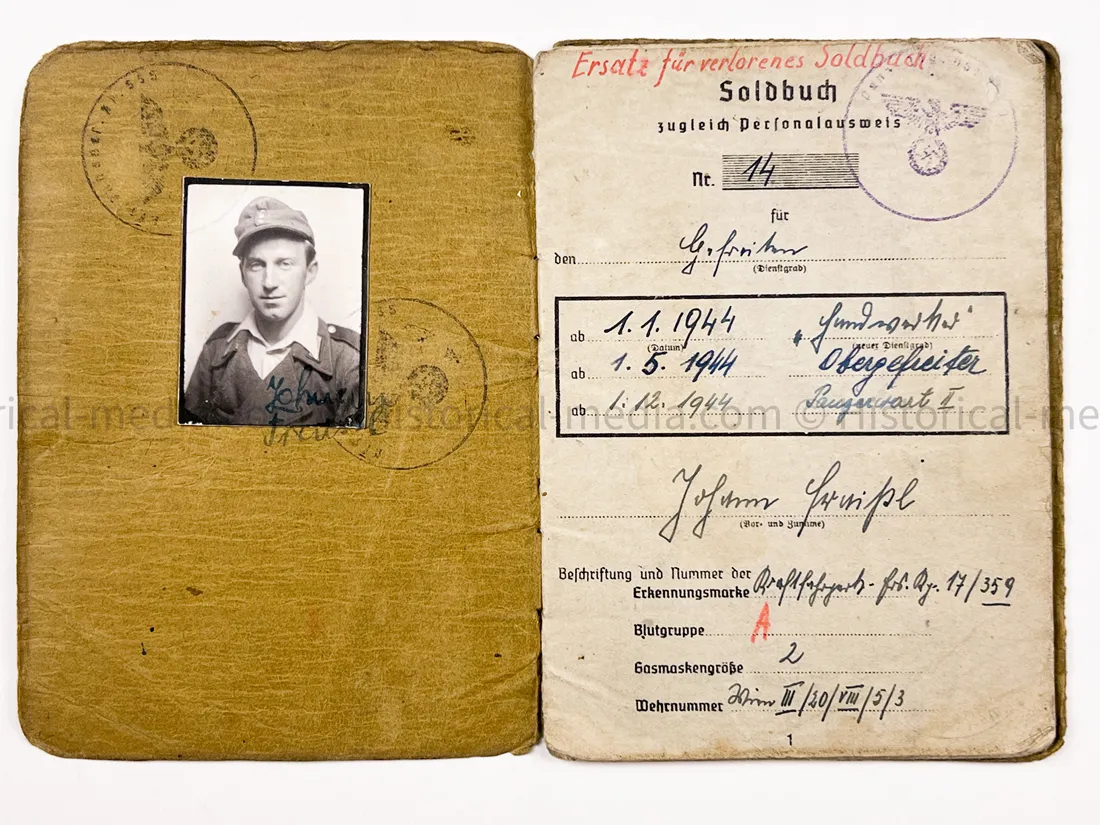 Johann
Ersatz für verlorenes Soldbuch
Soldbuch
zugleich Personalausweis
Nr. 14
für
den Gefreiten
(Dienstgrad)
ab 1.1.1944 „Handwerker"
(Datum) (neuer Dienstgrad)
ab 1.5.1944 Obergefreiter
ab 1.12.1944 Panzerwart II
historical-media.com © historical-me
Johann
(Vor- und Zuname)
Beschriftung und Nummer der
Erkennungsmarke Kraftfahrpark-Ers. Kp. 17/359
Blutgruppe A
Gasmaskengröße 2
Wehrnummer Wien III/20/VIII/5/3
1